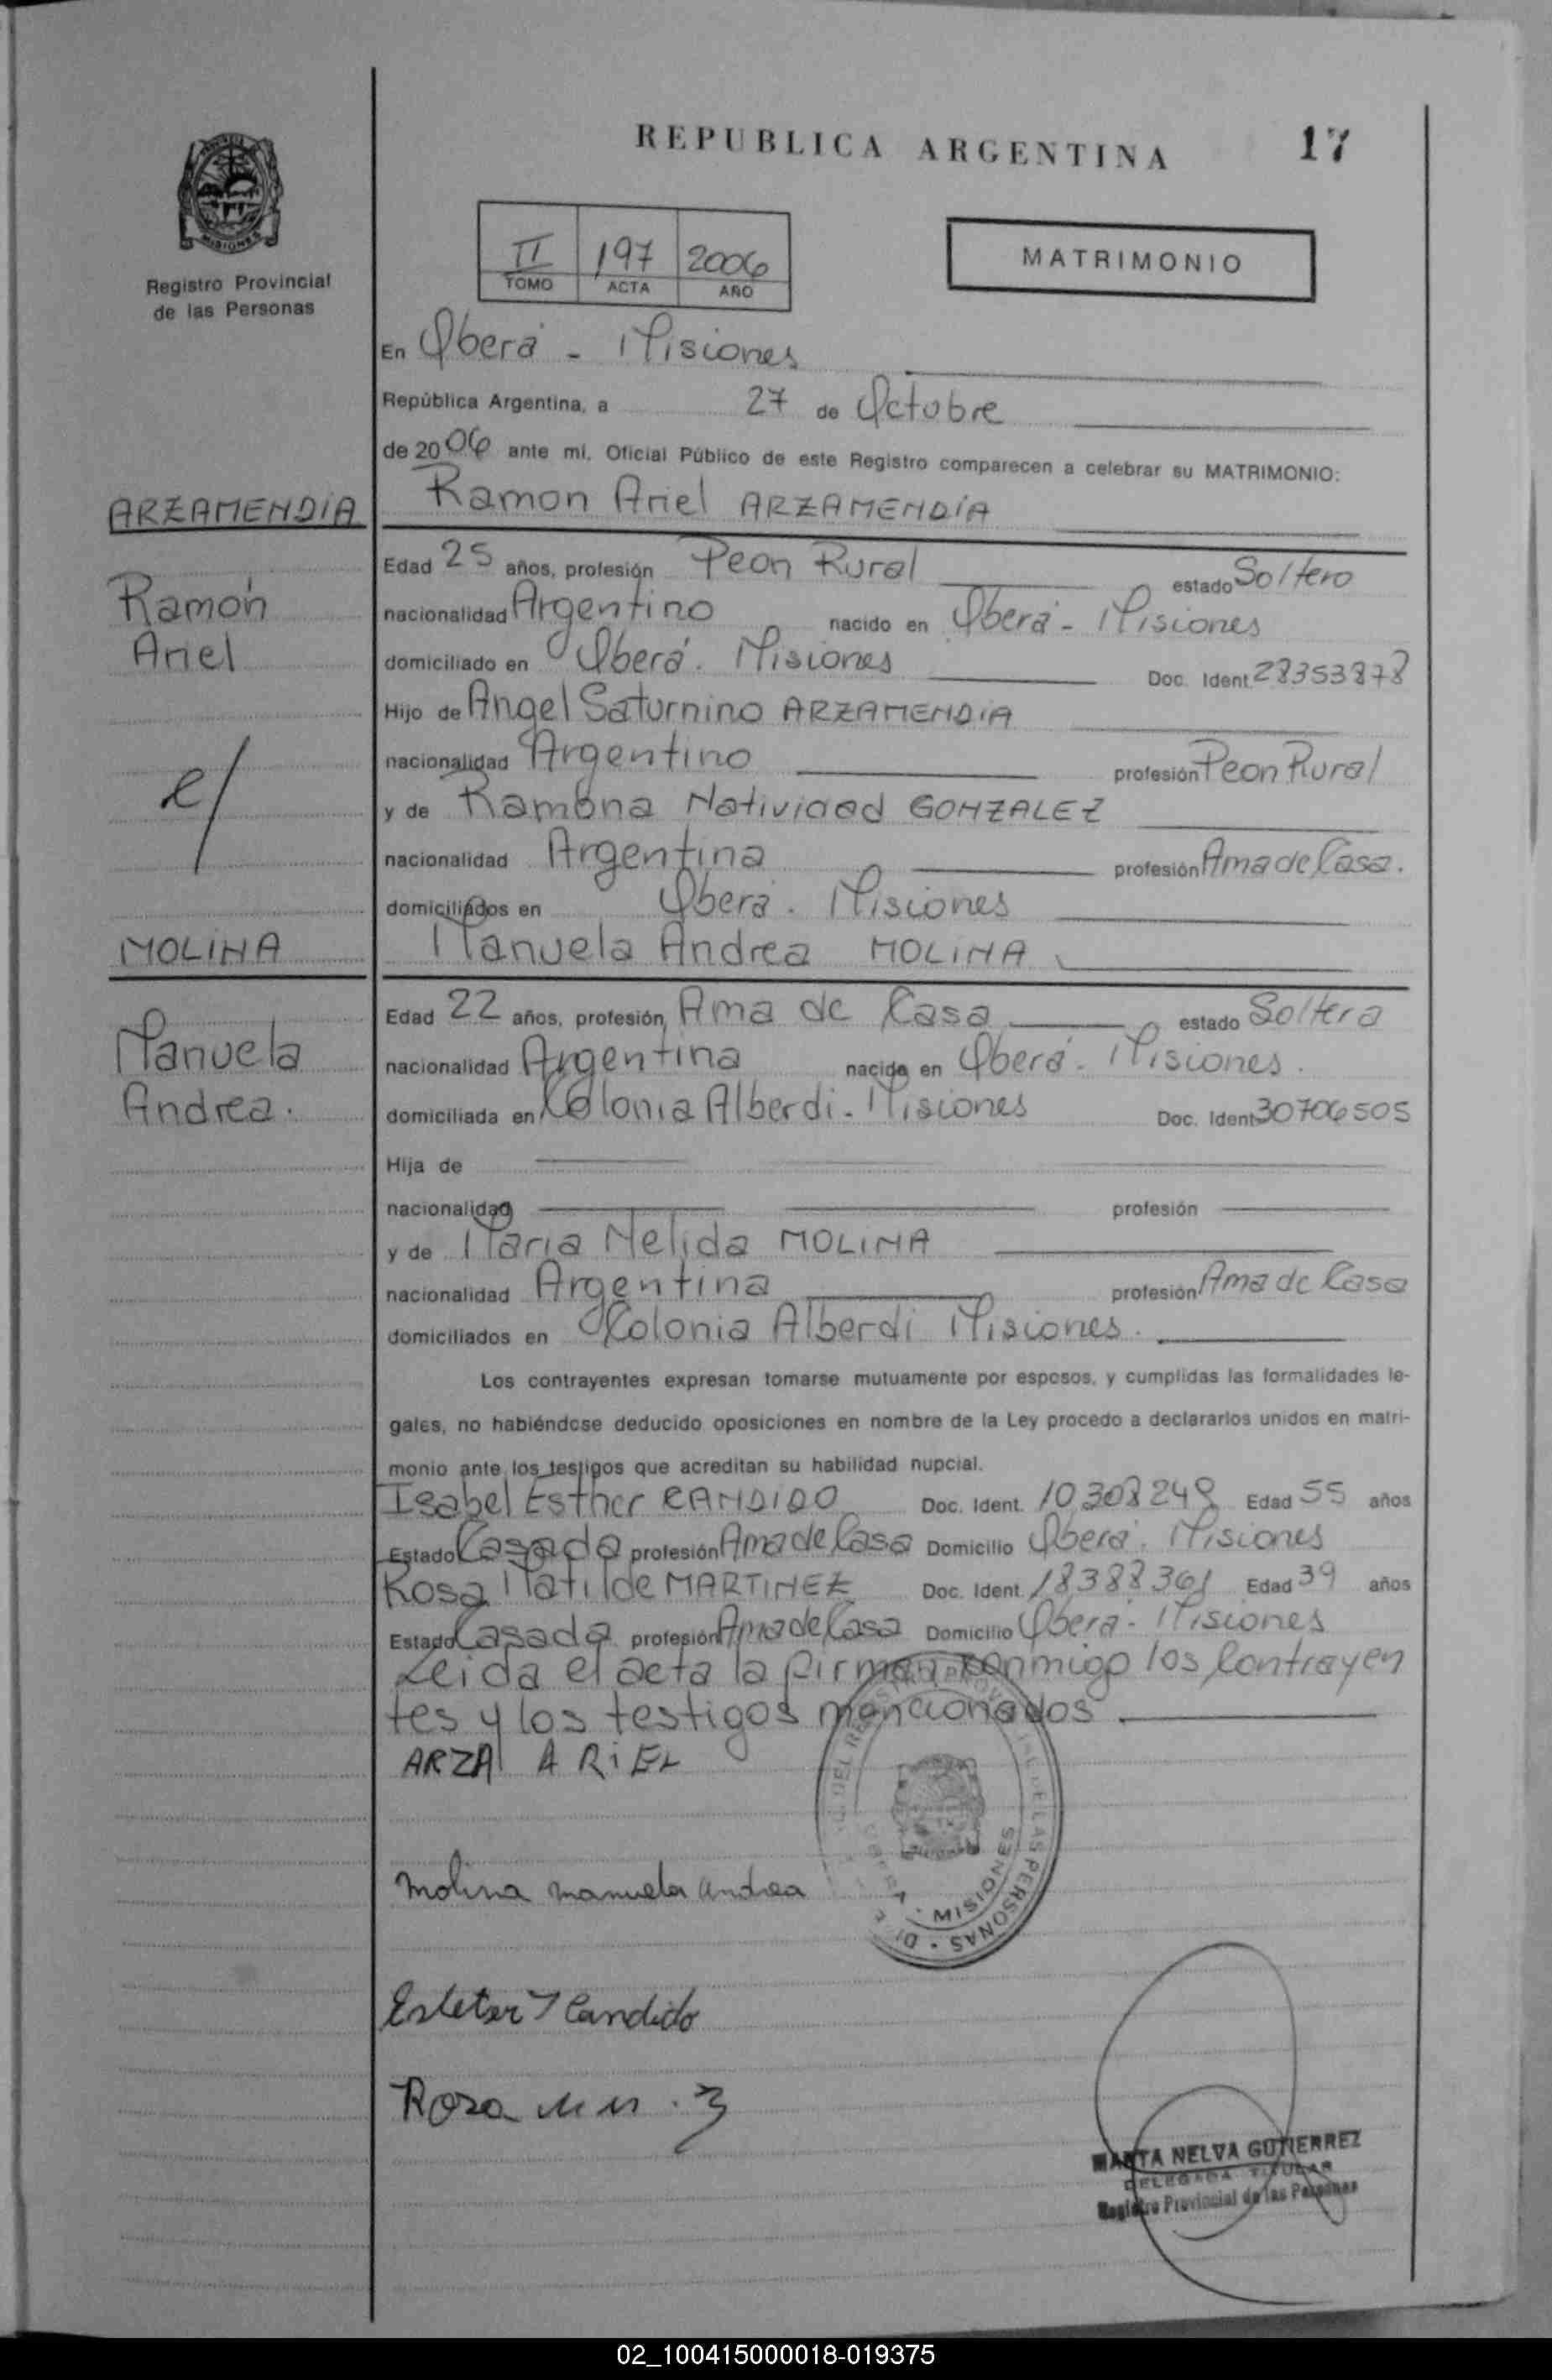 REPUBLICA ARGENTINA 17
MISIONES
Registro Provincial
de las Personas
II 197 2006
TOMO ACTA AÑO
MATRIMONIO
En Oberá - Misiones
República Argentina, a 27 de Octubre
de 2006 ante mí, Oficial Público de este Registro comparecen a celebrar su MATRIMONIO:
ARZAMENDÍA Ramon Ariel ARZAMENDÍA
Edad 25 años, profesión Peon Rural estado Soltero
Ramón nacionalidad Argentino nacido en Oberá - Misiones
Ariel domiciliado en Oberá. Misiones Doc. Ident. 28353878
Hijo de Angel Saturnino ARZAMENDIA
nacionalidad Argentino profesión Peon Rural
y de Ramona Natividad GONZALEZ
nacionalidad Argentina profesión Ama de Casa.
domiciliados en Oberá. Misiones
MOLINA Manuela Andrea MOLINA
Edad 22 años, profesión Ama de Casa estado Soltera
Manuela nacionalidad Argentina nacida en Oberá - Misiones.
Andrea. domiciliada en Colonia Alberdi - Misiones Doc. Ident. 30706505
Hija de
nacionalidad profesión
y de Maria Nelida MOLINA
nacionalidad Argentina profesión Ama de Casa
domiciliados en Colonia Alberdi Misiones.
Los contrayentes expresan tomarse mutuamente por esposos, y cumplidas las formalidades le-
gales, no habiéndose deducido oposiciones en nombre de la Ley procedo a declararlos unidos en matri-
monio ante los testigos que acreditan su habilidad nupcial.
Isabel Esther CANDIDO Doc. Ident. 10308249 Edad 55 años
Estado Casada profesión Ama de Casa Domicilio Oberá. Misiones
Rosa Matilde MARTINEZ Doc. Ident. 18388361 Edad 39 años
Estado Casada profesión Ama de Casa Domicilio Oberá - Misiones
Leida el acta la firman conmigo los Contrayen
tes y los testigos mencionados.
ARZA ARiEL
MISIONES
Molina manuela andrea
Candido
Rosa
MARTA NELVA GUTIERREZ
DELEGADA TITULAR
Registro Provincial de las Personas
02_100415000018-019375